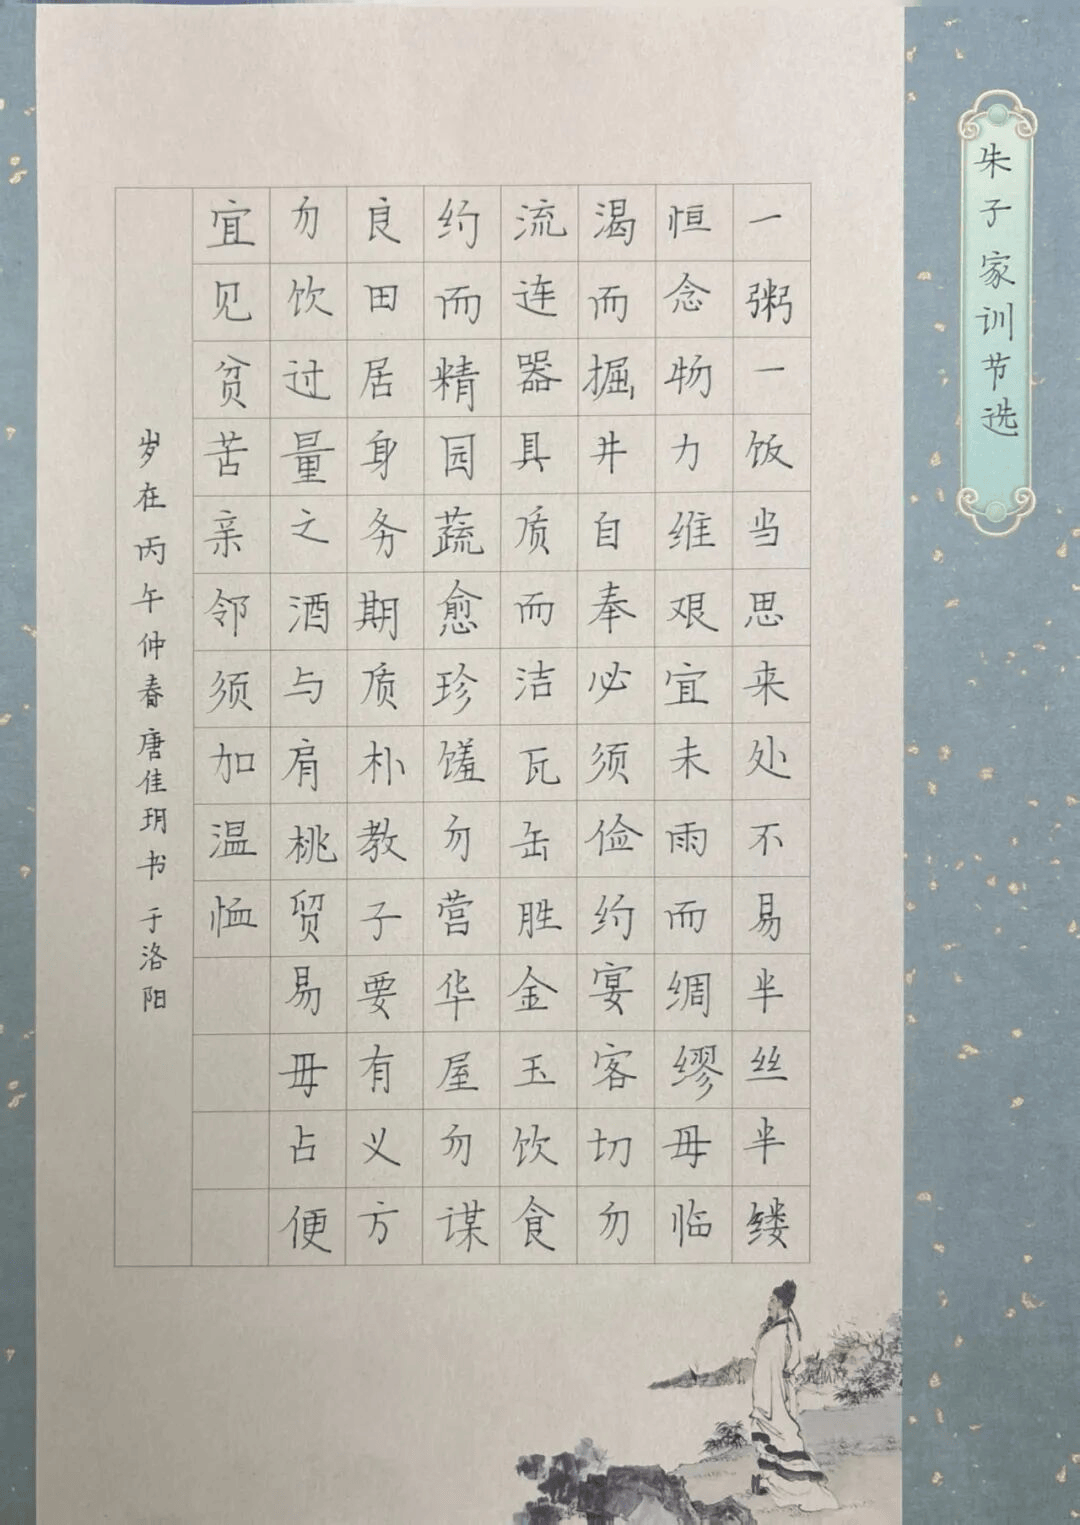 朱子家训节选
一粥一饭当思来处不易半丝半缕
恒念物力维艰宜未雨而绸缪毋临
渴而掘井自奉必须俭约宴客切勿
流连器具质而洁瓦缶胜金玉饮食
约而精园蔬愈珍馐勿营华屋勿谋
良田居身务期质朴教子要有义方
勿饮过量之酒与肩桃贸易毋占便
宜见贫苦亲邻须加温恤
岁在丙午仲春唐佳玥书于洛阳